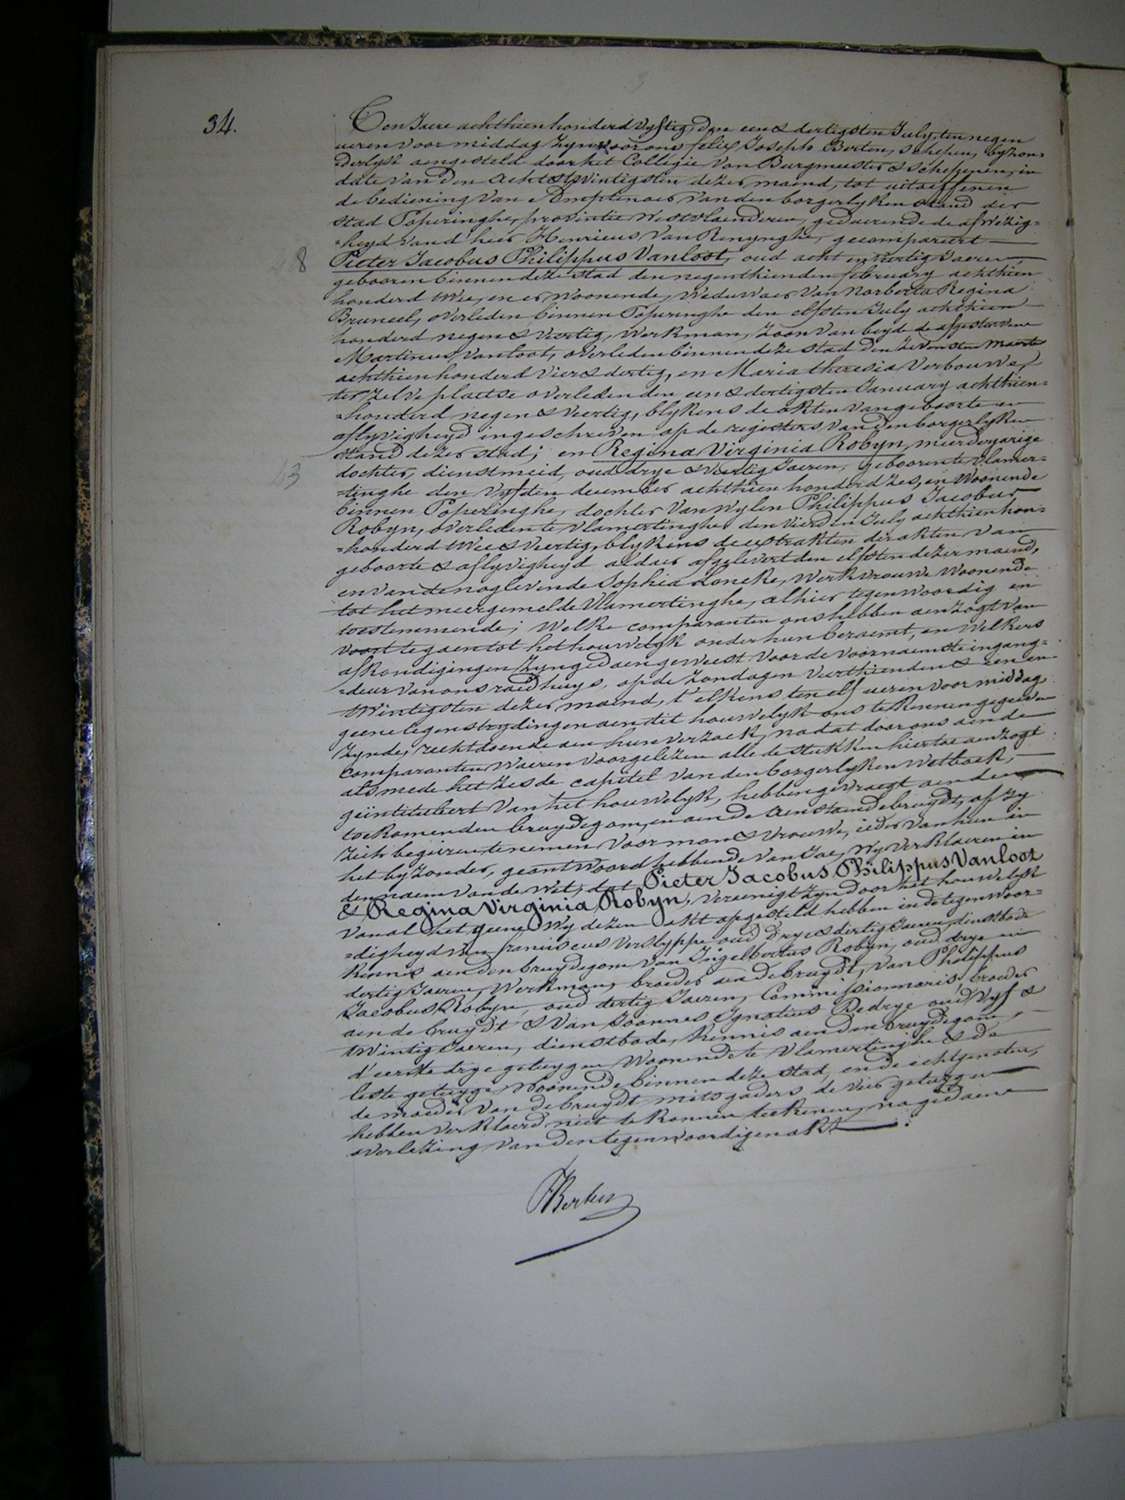 34.
Ten Jaere achthien honderd vyftig, den een & dertigsten July, ten negen
ueren voor middag zyn voor ons felix Joseph Berten, schepen, byzon-
derlyk aengesteld door het Collegie van Burgmeester & schepenen, in
date van den acht & twintigsten dezer maend, tot uitoeffenen
de bediening van Amptenaer van den borgerlyken stand der
stad Poperinghe, provintie Westvlaenderen, geduerende de afwezig-
heyd van d'heer Henricus Van Renynghe, gecompareert
48
Pieter Jacobus Philippus Vanloot, oud acht en veertig Jaeren
gebooren binnen deze stad den negenthienden february achthien
honderd twee, en er woonende, weduwaer van Norberta Regina
Bruneel, overleden binnen Poperinghe den elfsten July achthien
honderd negen & veertig, werkman, zoon van beyde de afgestorvene
Martinus Vanloot, overleden binnen deze stad den zevensten maerte
achthien honderd vier & dertig, en Maria theresia Verbouwe,
ter zelve plaetse overleden den een & dertigsten January achthien-
honderd negen & veertig, blykens de akten van geboorte en
aflyvigheyd ingeschreven op de registers van den borgerlyken
stand dezer stad; en Regina Virginia Robyn, meerderjarige
43
dochter, dienstmeid, oud drye & veertig Jaeren, geboren te Vlamer-
tinghe den vyfden december achthien honderd zes, en woonende
binnen Poperinghe, dochter van wylen Philippus Jacobus
Robyn, overleden te Vlamertinghe den vierden July achthien hon-
honderd twee & veertig, blykens de extrakten der akten van
geboorte & aflyvigheyd aldaer afgelevert den elfsten dezer maend,
en van de nog levende Sophia Loncke, werkvrouwe woonende
tot het meergemelde Vlamertinghe, alhier tegenwoordig en
toestemmende; Welke comparanten ons hebben aenzogt van
voort te gaen tot het houwelyk onder hun beraemt, en welkers
afkondigingen zyn gedaen geweest voor de voornaemste ingang-
deur van ons raedhuys, op de zondagen veerthienden & een en
twintigsten dezer maend, t'elkens ten elf ueren voor middag.
geene tegenstrydingen aen dit houwelyk ons te kennen gegeven
zynde, rechtdoende aen hun verzoek, na dat door ons aen de
comparanten waeren voorgelezen alle de stukken hiertoe aenzogt
als mede het zesde capitel van den borgerlyken wetboek,
geïntituleert van het houwelyk, hebben gevraegt aen den
toekomenden bruydegom, en aen de aenstaende bruydt, of zy
zich begeiren te nemen voor man & vrouwe, ieder van hun in
het byzonder, geantwoord hebbende van Jae, wy verklaeren in
den naem van de wet, dat Pieter Jacobus Philippus Vanloot
& Regina Virginia Robyn, vereenigt zyn door het houwelyk
van al het gene wy dezen akt opgesteld hebben in de tegenwoor-
digheyd van franciscus Verslyppe oud drye & dertig Jaeren, dienstbode
kennis aen den bruydegom van Engelbertus Robyn, oud drye en
dertig Jaeren, werkman, broeder aen de bruydt, van Philippus
Jacobus Robyn, oud dertig Jaeren, Commissionnaris, broeder
aen de bruydt & van Joannes Ignatius Dedrye oud vyf &
twintig Jaeren, dienstbode, kennis aen den bruydegom,
d'eerste drye getuygen woonende te Vlamertinghe & de
leste getuyge woonende binnen deze stad, en de echtgenoten,
de moeder van de bruydt mitsgaders de vier getuygen
hebben verklaerd niet te konnen teekenen, na gedaene
overlezing van den tegenwoordigen akt.
FBerten